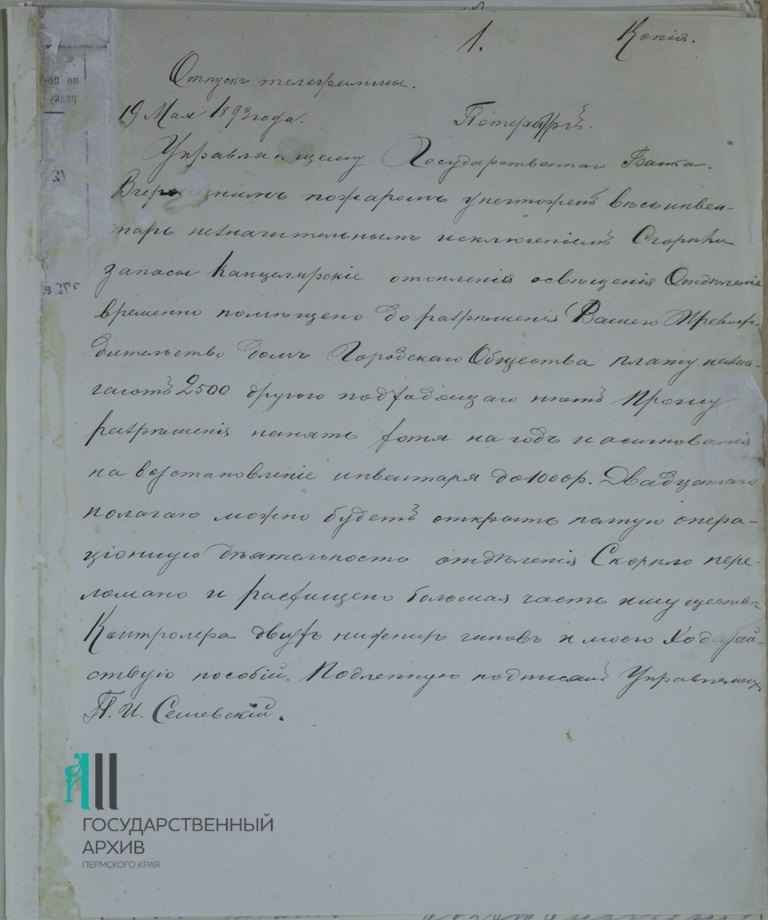 1. Копія.
Отпускъ телеграммы.
19 Мая 1893 года. Петербургъ.
Управляющему Государственнаго Банка.
Вчерашнимъ пожаромъ уничтоженъ весь инвен-
тарь незначительнымъ исключеніемъ Сгорѣли
запасы канцелярскіе отопленія освѣщенія Отдѣленіе
временно помѣщено до разрѣшенія Вашего Превосхо-
дительство домъ Городскаго Общества плату назна-
чаютъ 2500 другого подходящаго нѣтъ Прошу
разрѣшенія нанять хотя на годъ и асигнованія
на возстановленіе инвентаря до 1000 р. Двадцатаго
полагаю можно будетъ открыть полную опера-
ціонную дѣятельность отдѣленія Сгорѣло пере-
ломано и расхищено большая часть имущества
Контролера двухъ нижнихъ чиновъ и моего Ходатай-
ствую пособіи. Подленную подписалъ Управляющ.
П. И. Семевскій.
ГОСУДАРСТВЕННЫЙ
АРХИВ
ПЕРМСКОГО КРАЯ